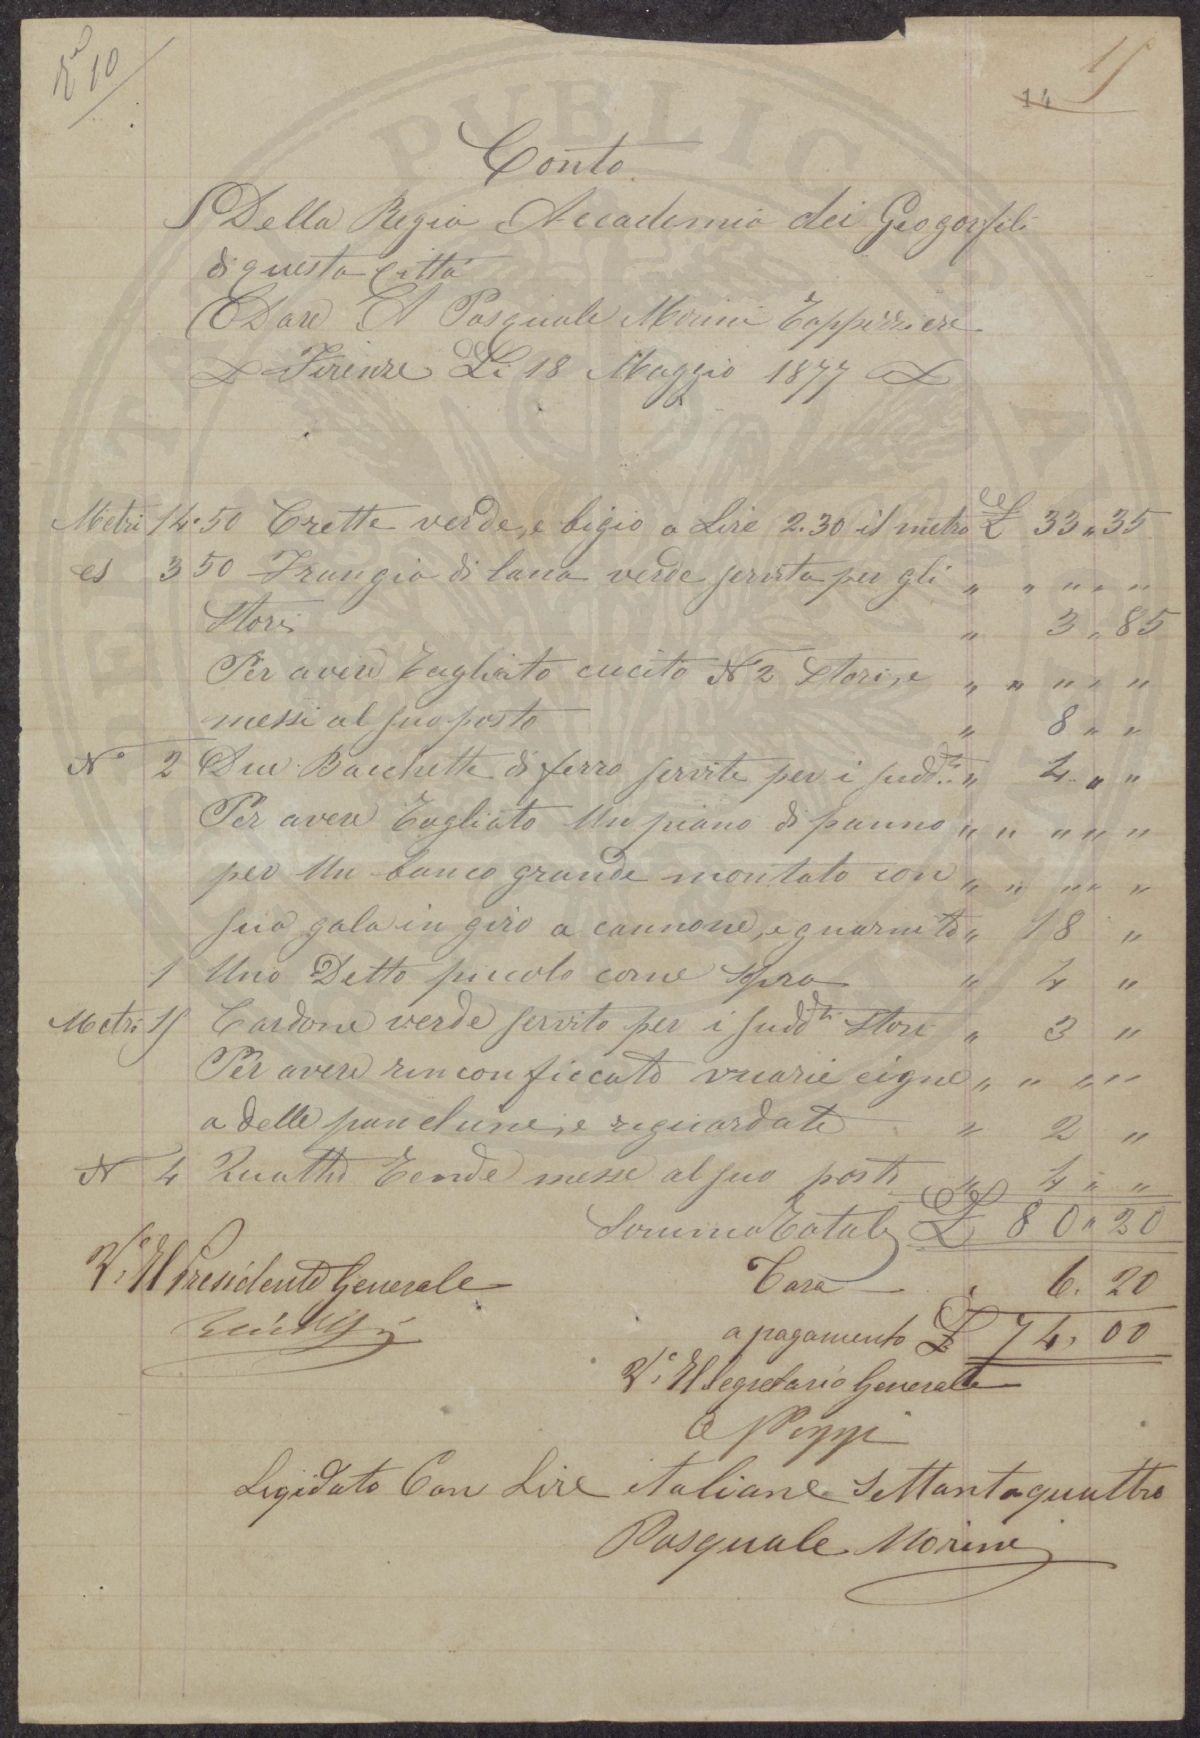 N° 10
14
15
Conto
Della Regia Accademia dei Geogorfili
di questa città
Dare A Pasquale Morini Tappizziere
Firenze Li 18 Maggio 1877
Metri 14.50 Crette verde, e bigio a Lire 2.30 il metro £ 33 " 35
3 50 Frangia di lana verde servita per gli " " " " "
Stori " 3 " 85
Per avere Tagliato cucito N 2 Stori, e " " " " "
messi al suo posto " 8 " "
N° 2 Due Bacchette di ferro servite per i sudd.ti " 4 " "
Per avere Tagliato Un piano di panno " " " " "
per Un banco grande montato con " " " " "
sua gala in giro a cannone, e guarnito " 18 "
1 Uno Detto piccolo come sopra " 4 "
Metri 15 Cardone verde servito per i sudd.ti Stori " 3 "
Per avere rinconficcato vuarie cigne " " " " "
a delle panchine, e riguardate " 2 "
N 4 Quattro Tende messe al suo posto " 4 " "
Somma Totale £ 80 " 20
V.° Il Presidente Generale
Tara 6. 20
a pagamento £ 74, 00
V.° Il Segretario Generale
Ligidato Con Lire italiane Settantaquattro
Pasquale Morini